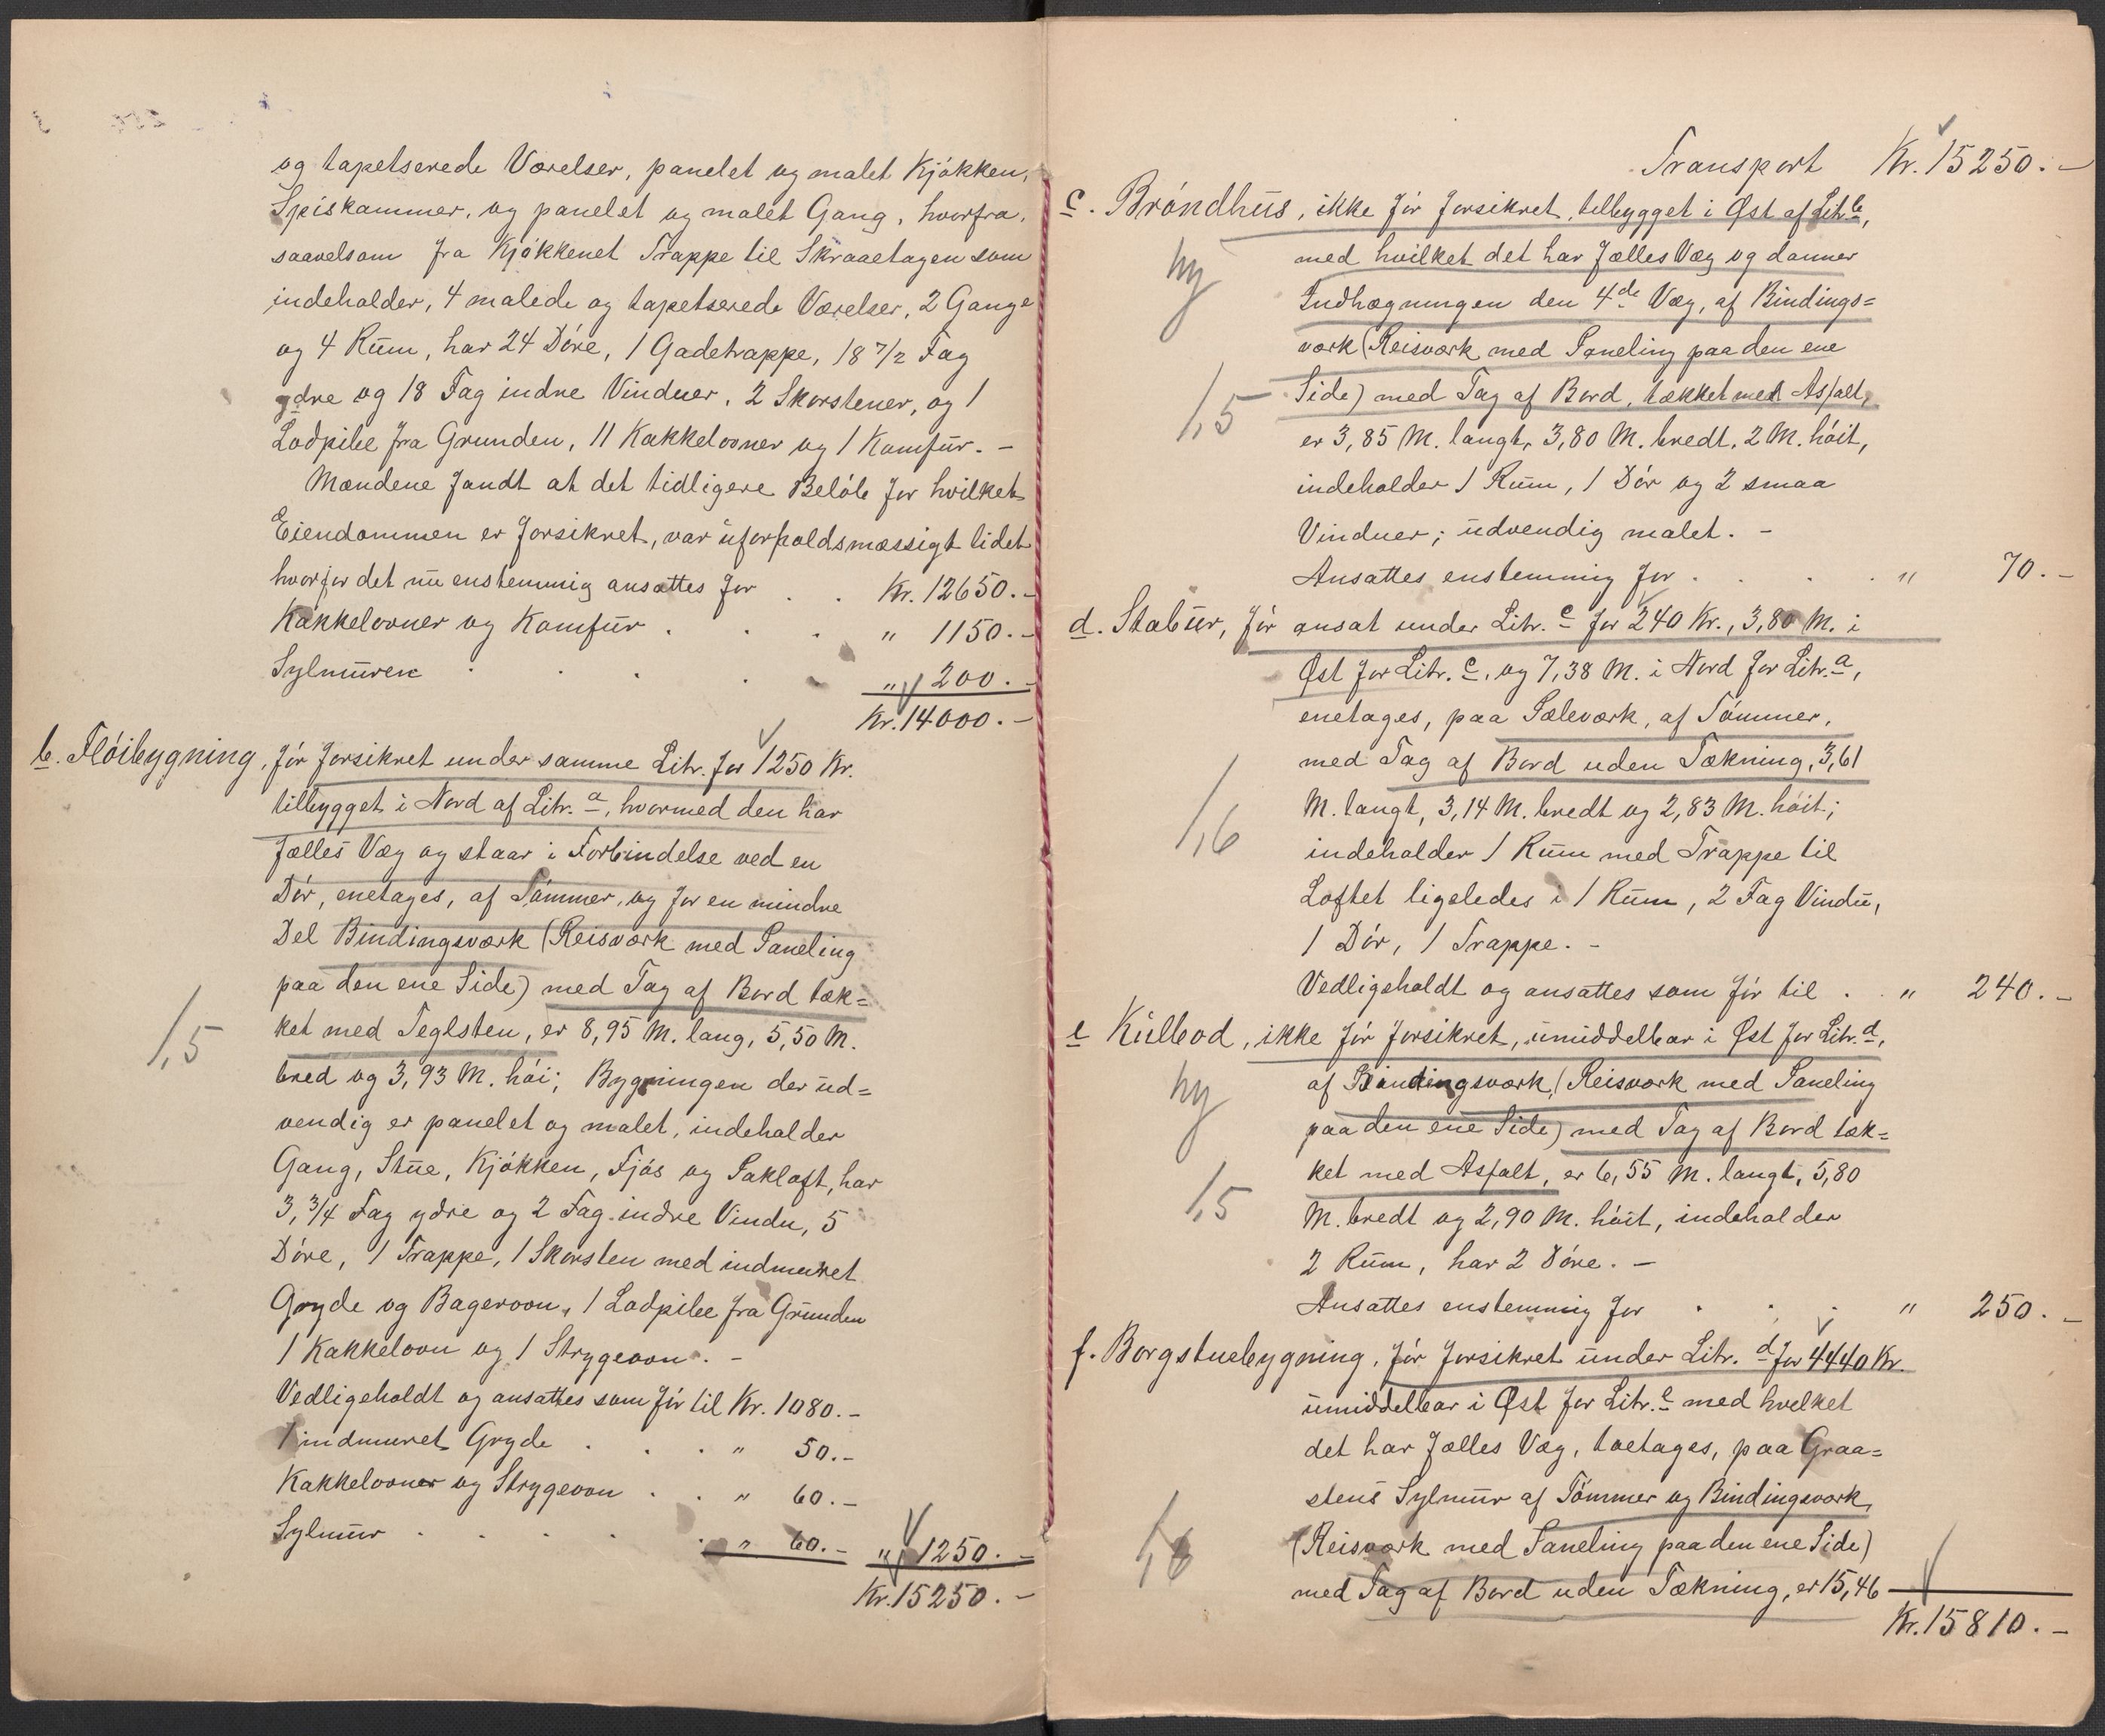 og tapetserede Værelser, panelet og malet Kjøkken,
Spiskammer, og panelet og malet Gang, hvorfra,
saavelsom fra Kjøkkenet Trappe til Skraaetagen som
indeholder, 4 malede og tapetserede Værelser, 2 Gange
og 4 Rum, har 24 Døre, 1 Gadetrappe, 18 7/2 Fag
ydre og 18 Fag indre Vinduer, 2 Skorstener, og 1
Lodpibe fra Grunden, 11 Kakkelovner og 1 Komfur. -
Mændene fandt at det tidligere Beløb for hvilket
Eiendommen er forsikret, var uforholdsmæssigt lidet
hvorfor det nu enstemmig ansattes for . . Kr. 12650. -
Kakkelovner og Komfur . . . " 1150. -
Sylmuren . . . . " 200. -
Kr. 14000. -
b. Fløibygning, før forsikret under samme Litr. for 1250 Kr.
tilbygget i Nord af Litr. a, hvormed den har
fælles Væg og staar i Forbindelse ved en
Dør, enetages, af Tømmer, og for en mindre
Del Bindingsværk (Reisværk med Paneling
paa den ene Side) med Tag af Bord tæk=
1,5
ket med Teglsten, er 8,95 M. lang, 5,50 M.
bred og 3,93 M. høi; Bygningen der ud=
vendig er panelet og malet, indeholder
Gang, Stue, Kjøkken, Fjøs og Lakloft, har
3, 3/4 Fag ydre og 2 Fag indre Vindu, 5
Døre, 1 Trappe, 1 Skorsten med indmuret
Gryde og Bagerovn, 1 Lodpibe fra Grunden
1 Kakkelovn og 1 Strygeovn. -
Vedligeholdt og ansattes som før til Kr. 1080. -
1 indmuret Gryde . . . " 50. -
Kakkelovner og Strygeovn . . " 60. -
Sylmur . . . . . " 60. - " 1250. -
Kr. 15250. -
Transport Kr. 15250. -
c. Brøndhus, ikke før forsikret, tilbygget i Øst af Litr. b,
ny
med hvilket det har fælles Væg og danner
Indhægningen den 4de Væg, af Bindings=
værk (Reisværk med Paneling paa den ene
1,5
Side) med Tag af Bord, tækket med Asfalt,
er 3,85 M. langt, 3,80 M. bredt, 2 M. høit,
indeholder 1 Rum, 1 Dør og 2 smaa
Vinduer; udvendig malet. -
Ansattes enstemmig for . . . . " 70. -
d. Stabur, før ansat under Litr. c for 240 Kr., 3,80 M. i
Øst for Litr. c, og 7,38 M. i Nord for Litr. a,
enetages, paa Pæleværk, af Tømmer,
med Tag af Bord uden Tækning, 3,61
1,6
M. langt, 3,14 M. bredt og 2,83 M. høit;
indeholder 1 Rum med Trappe til
Loftet ligeledes i 1 Rum, 2 Fag Vindu,
1 Dør, 1 Trappe. -
Vedligeholdt og ansattes som før til . . " 240. -
e Kulbod, ikke før forsikret, umiddelbar i Øst for Litr. d,
ny
af Bindingsværk, (Reisværk med Paneling
paa den ene Side) med Tag af Bord tæk=
1,5
ket med Asfalt, er 6,55 M. langt, 5,80
M. bredt og 2,90 M. høit, indeholder
2 Rum, har 2 Døre. -
Ansattes enstemmig for . . . " 250. -
f. Borgstuebygning, før forsikret under Litr. d for 4440 Kr.
umiddelbar i Øst for Litr. e med hvilket
det har fælles Væg, toetages, paa Graa=
stens Sylmur af Tømmer og Bindingsværk
(Reisværk med Paneling paa den ene Side)
med Tag af Bord uden Tækning, er 15,46
Kr. 15810. -